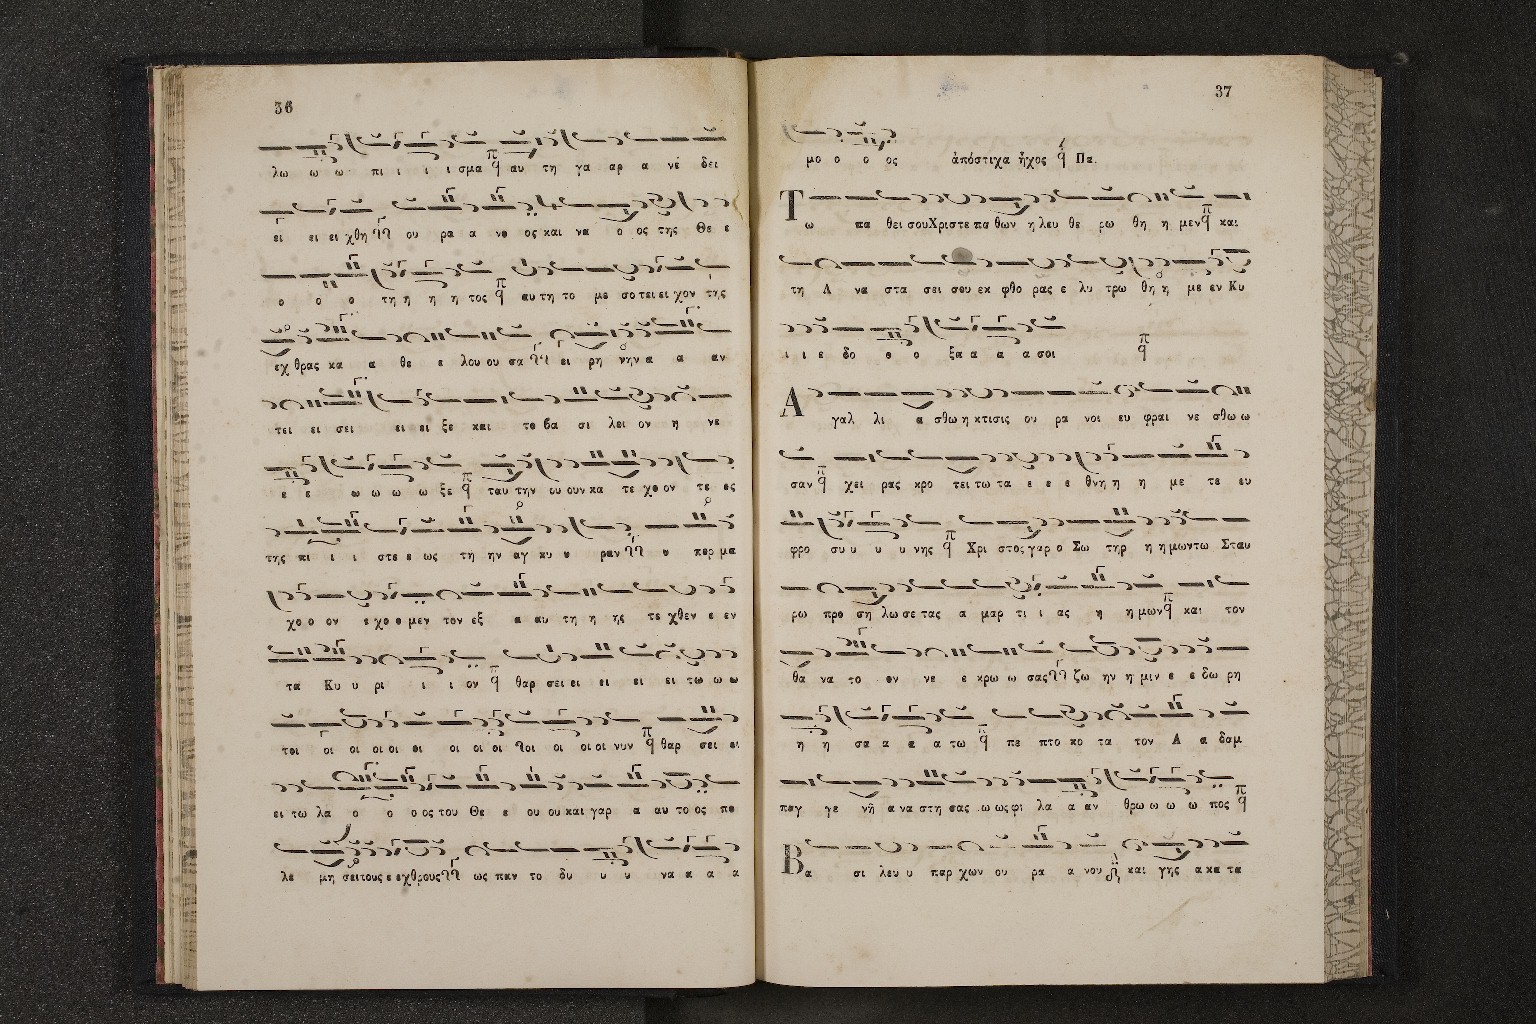 36
λω ω ω πι ι ι ι σμα αυ τη γα αρ α νέ δει
εἰ ει ει χθη ου ρα α νο ος και να ο ος της Θε ε
ο ο ο τη ή η η τος αυ τη το με σο τει ει χον τῆς
εχ θρας κα α θε ε λου ου σα ει ρη νην α α αν
τει ει σει ει ει ξε και το βα σι λει ον η νε
ε ε ω ω ω ω ξε ταυ την ου ουν κα τε χο ον τε ες
της πι ι ι στε ε ως τη ην αγ κυ υ ραν υ περ μα
χο ο ον ε χο ο μεν τον εξ α αυ τη η ης τε χθεν ε εν
τα Κυ υ ρι ι ι ον θαρ σει ει ει ει ει τω ω ω
τοι οι οι οι οι οι οι οι οι οι οι οι οι νυν θαρ σει ει
ει τω λα ο ο ο ος του Θε ε ου ου και γαρ α αυ το ος πο
λε μη σει τους ε εχθρους ως παν το δυ υ υ να α α α
37
μο ο ο ος ἀπόστιχα ἦχος Πα.
Τω πα θει σου Χριστε πα θων η λευ θε ρω θη η μεν και
τη Α να στα σει σου εκ φθο ρας ε λυ τρω θη η με εν Κυ
ι ι ε δο ο ο ξα α α α σοι
Α γαλ λι α σθω η κτισις ου ρα νοι ευ φραι νε σθω ω
σαν χει ρας κρο τει τω τα ε ε ε θνη η η με τε ευ
φρο συ υ υ υ νης Χρι στος γαρ ο Σω τηρ η η μων τω Σταυ
ρω προ ση λω σε τας α μαρ τι ι ας η η μων και τον
θα να το ον νε ε κρω ω σας ζω ην η μιν ε ε δω ρη
η η σα α α α τω πε πτο κο τα τον Α α δαμ
παγ γε νῆ α να στη σας ω ως φι λα α αν θρω ω ω ω πος
Βα σι λευ υ παρ χων ου ρα α νου και γης α κα τα